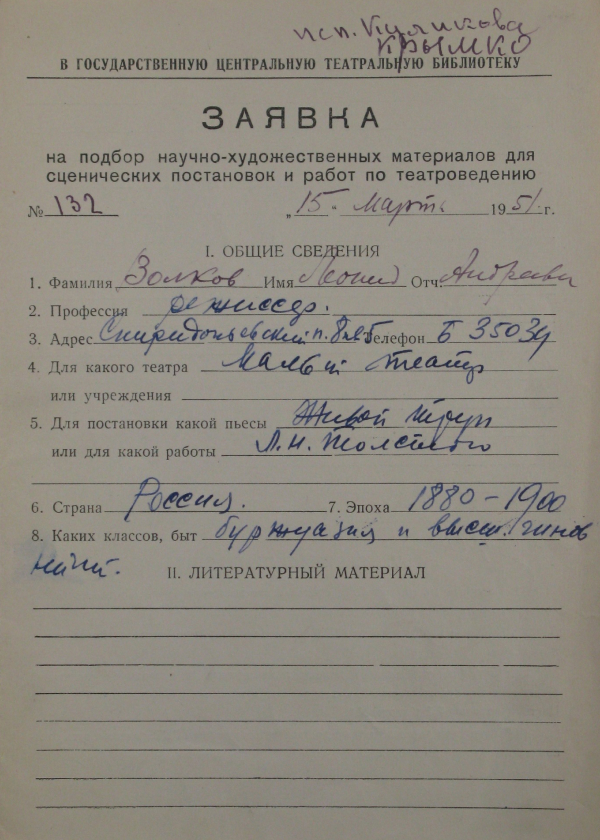 исп. Куликова
Крымко
В ГОСУДАРСТВЕННУЮ ЦЕНТРАЛЬНУЮ ТЕАТРАЛЬНУЮ БИБЛИОТЕКУ
ЗАЯВКА
на подбор научно-художественных материалов для
сценических постановок и работ по театроведению
№ 132 „15" Марта 1951 г.
I. ОБЩИЕ СВЕДЕНИЯ
1. Фамилия Волков Имя Леонид Отч. Андреевич
2. Профессия режиссер.
3. Адрес Спиридоньевский п. Телефон Б 35034
4. Для какого театра Малый театр
или учреждения
5. Для постановки какой пьесы Живой труп
или для какой работы Л. Н. Толстого
6. Страна Россия. 7. Эпоха 1880-1900
8. Каких классов, быт буржуазия и высш. чинов
ничий.
II. ЛИТЕРАТУРНЫЙ МАТЕРИАЛ